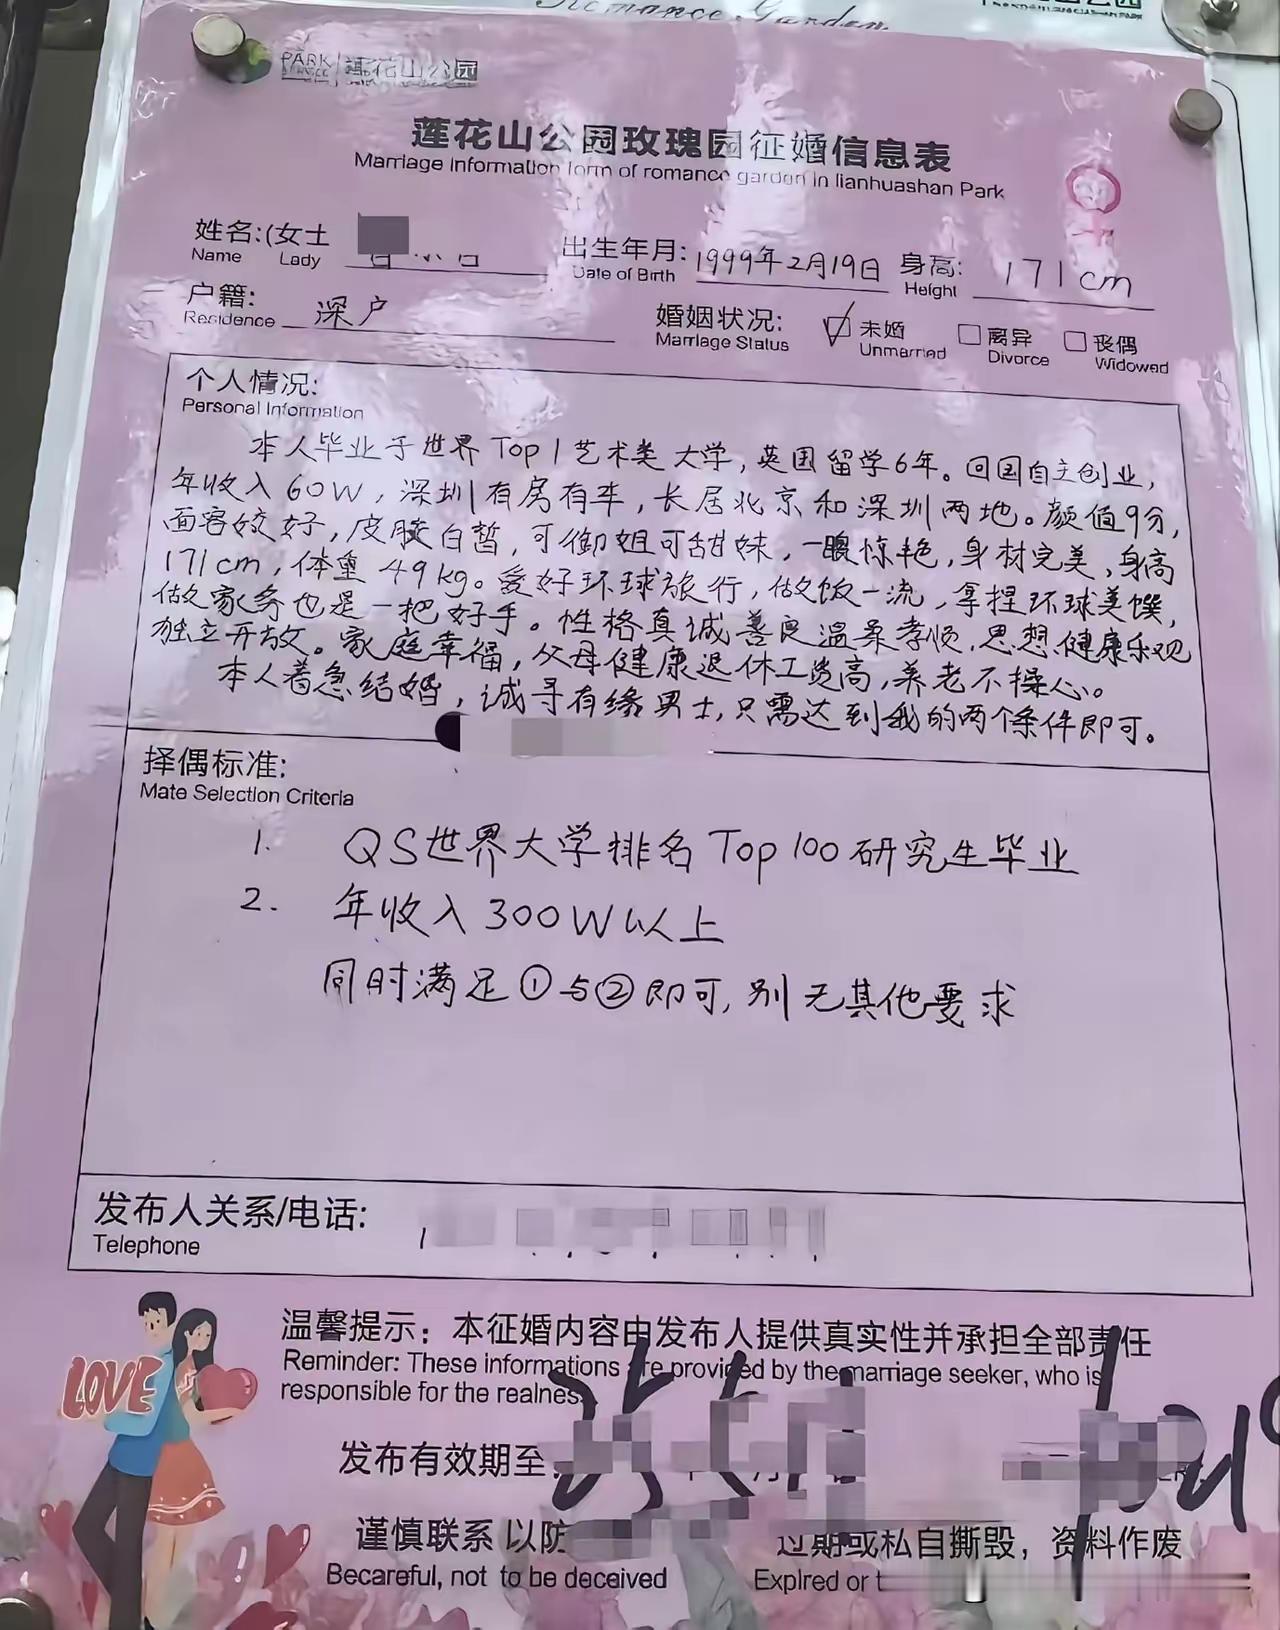 Romance Garden
PARK 莲花山公园
莲花山公园玫瑰园征婚信息表
Marriage information form of romance garden in lianhuashan Park
姓名:(女士 出生年月: 1999年2月19日 身高: 171cm
Name Lady Date of Birth Height
户籍: 深户 婚姻状况: 未婚 离异 丧偶
Residence Marriage Status Unmarried Divorce Widowed
个人情况:
Personal Information
本人毕业于世界Top1艺术类大学,英国留学6年。回国自主创业,
年收入60W,深圳有房有车,长居北京和深圳两地。颜值9分,
面容姣好,皮肤白皙,可御姐可甜妹,一眼惊艳,身材完美,身高
171cm,体重49kg。爱好环球旅行,做饭一流,拿捏环球美馔,
做家务也是一把好手。性格真诚善良温柔孝顺,思想健康乐观
独立开放。家庭幸福,父母健康退休工资高,养老不操心。
本人着急结婚,诚寻有缘男士,只需达到我的两个条件即可。
择偶标准:
Mate Selection Criteria
1. QS世界大学排名Top100研究生毕业
2. 年收入300W以上
同时满足①与②即可,别无其他要求
发布人关系/电话:
Telephone
温馨提示：本征婚内容由发布人提供真实性并承担全部责任
Reminder: These informations are provided by the marriage seeker, who is
responsible for the realnes
LOVE
发布有效期至
谨慎联系 以防 过期或私自撕毁，资料作废
Becareful, not to be deceived Expired or